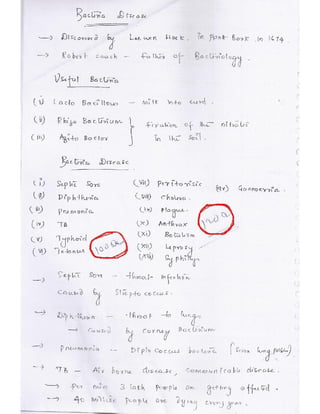 Bacteria Disease
→ Discovered by Leewen Hoek, in plant Bark, in 1674.
→ Robert coach – father of Bacteriology.
Useful Bacteria
(i) Lacto Bacillus – milk into curd.
(ii) Rhizo Bacterium } fixation of the nitrates
(iii) Azito Bacter } in the Soil.
Bacteria Disease
(i) Septic Sore (vii) Peritorisic (xiv) Gonnerria.
(ii) Diphtheria (viii) Cholera.
(iii) Pneumonia (ix) Plague.
(iv) TB (x) Anthrax
(v) Typhoid (xi) Botulism
(vi) Tetanus (xii) Leprosy
(xiii) Syphilis
→ Septic Sore – throat infection
caused by Streptococcus.
→ Diphtheria – throat to lungs
→ caused by corney Bacterium
→ pneumonia – Diplo coccus bacteria
→ TB – Air borne disease, communicable disease.
→ Per min 3 lakh people are getting affected.
→ 40 million people are dying every year.